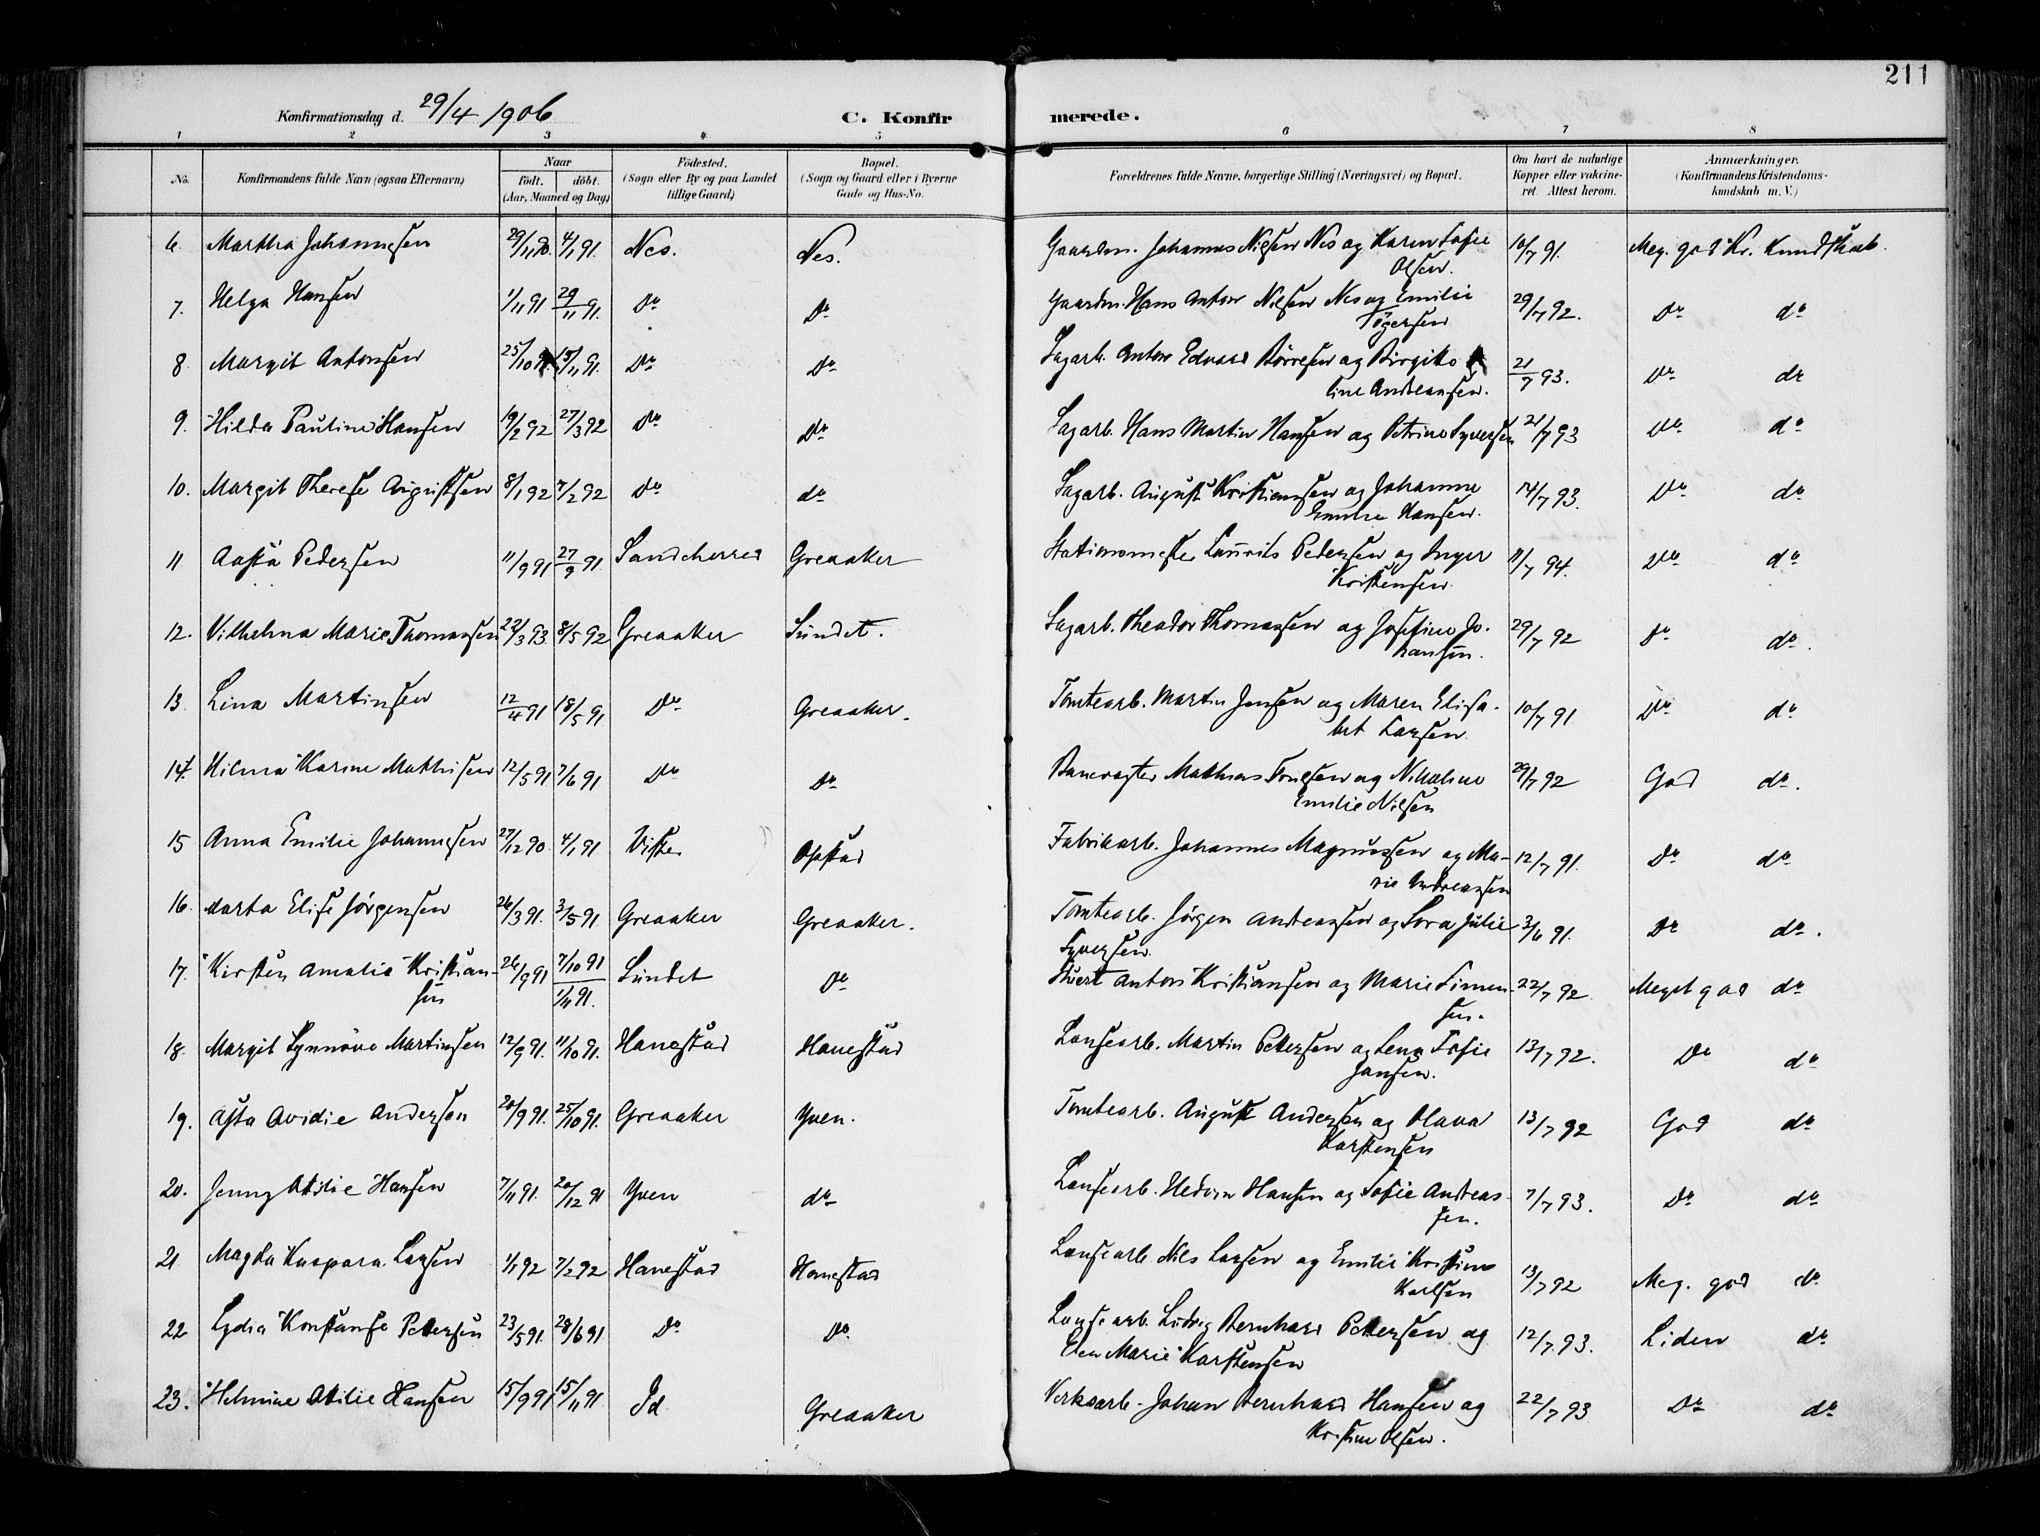 211
Konfirmationsdag d. 29/4 1906 C. Konfirmerede.
1 2 3 4 5 6 7 8
No. Konfirmandens fulde Navn (ogsaa Efternavn) Naar Födested. Bopæl. Forældrenes fulde Navne, borgerlige Stilling (Næringsvei) og Bopæl. Om havt de naturlige Anmærkninger.
født. döbt. (Sogn eller By og paa Landet (Sogn og Gaard eller i Byerne Kopper eller vakcine- (Konfirmandens Kristendoms-
(Aar, Maaned og Dag) tillige Gaard) Gade og Hus-No. ret. Attest herom. kundskab m. V.)
6 Martha Johannesen 29/11 90. 4/1 91. Nes. Nes. Gaardm. Johannes Nielsen Nes og Karen Sofie 10/7 91. Meg. god Kr. Kundskab.
Olsen.
7. Helga Hansen 1/11 91 29/11 91. Do Do Gaardm. Hans Anton Nielsen Nes og Emilie 29/7 92. Do do
8. Margit Antonsen 25/10 91. 15/11 91. Do Do Sagarb. Anton Edvard Börresen og Birgitte 21/7 93. Do do
tine Andreassen.
9. Hilda Pauline Hansen 19/2 92 27/3 92 Do Do Sagarb. Hans Martin Hansen og Petrine Syversen 21/7 93 Do do
10. Margit Therese Augustsen 8/1 92 7/2 92 Do do Sagarb. August Kristiansen og Johanne 14/7 93. Do do
Emilie Hansen.
11 Aasta Pedersen 11/9 91 27/9 91 Sandeherred Greaaker Stationsmester Laurits Pedersen og Inger 11/7 94. Do do
Kristensen.
12. Vilhelmina Marie Thomassen 22/3 93. 8/5 92 Greaaker Sundet. Sagarb. Theodor Thomassen og Josefine Jo- 29/7 92 Do do.
hansen.
13 Lina Martinsen 12/4 91 18/5 91 Do Greaaker. Tomtearb. Martin Jensen og Maren Elisa- 10/7 91 Do do
bet Larsen.
14. Hilma Karine Mathisen 12/5 91 7/6 91 Do Do Banevogter Mathias og Nikoline 29/7 92 God do.
Emilie Nielsen
15 Anna Emilie Johannesen 27/12 90. 4/1 91 Viste. Opstad Fabrikarb. Johannes Magnussen og Ma- 12/7 91. Do do
rie Andreassen
16. Marta Elise Jørgensen 26/3 91. 3/5 91 Greaaker Greaaker. Tomtearb. Jørgen Andreassen og Lora Julie 3/6 91. Do do.
Syversen.
17. Kirsten Amalie Kristian- 26/9 91 7/10 91 Sundet Do Anton Kristiansen og Marie Simen- 22/7 92. Meget god do
sen 1/11 91. sen.
18. Margit Synnöve Martinsen 12/9 91. 11/10 91. Hanestad Hanestad Lensearb. Martin Petersen og Lena Sofie 13/7 92. Do do
Jansen.
19. Asta Ovidie Andersen 20/9 91. 25/10 91. Greaaker Yven. Tomtearb. August Andersen og Olava 13/7 92 God do
Karstensen
20. Jenny Otilie Hansen 7/11 91. 20/12 91 Yven do Lensearb. Hansen og Sofie Andreas- 7/7 93. Do do
sen.
21. Magda Kaspara Larsen 1/1 92 7/2 92 Hanestad Hanestad Lensearb Nils Larsen og Emilie Kristine 13/7 92 Meg. god do
Karlsen
22 Lydia Konstanse Petersen 23/5 91. 28/6 91 Do Do. Lensearb. Ludvig Bernhard Petersen og 12/7 93. Liden do
Marie Karstensen
23. Helmine Otilie Hansen 15/9 91 15/11 91. Id Greaaker Verksarb. Johan Bernhard Hansen og 22/7 93 Do do
Kristine Olsen.